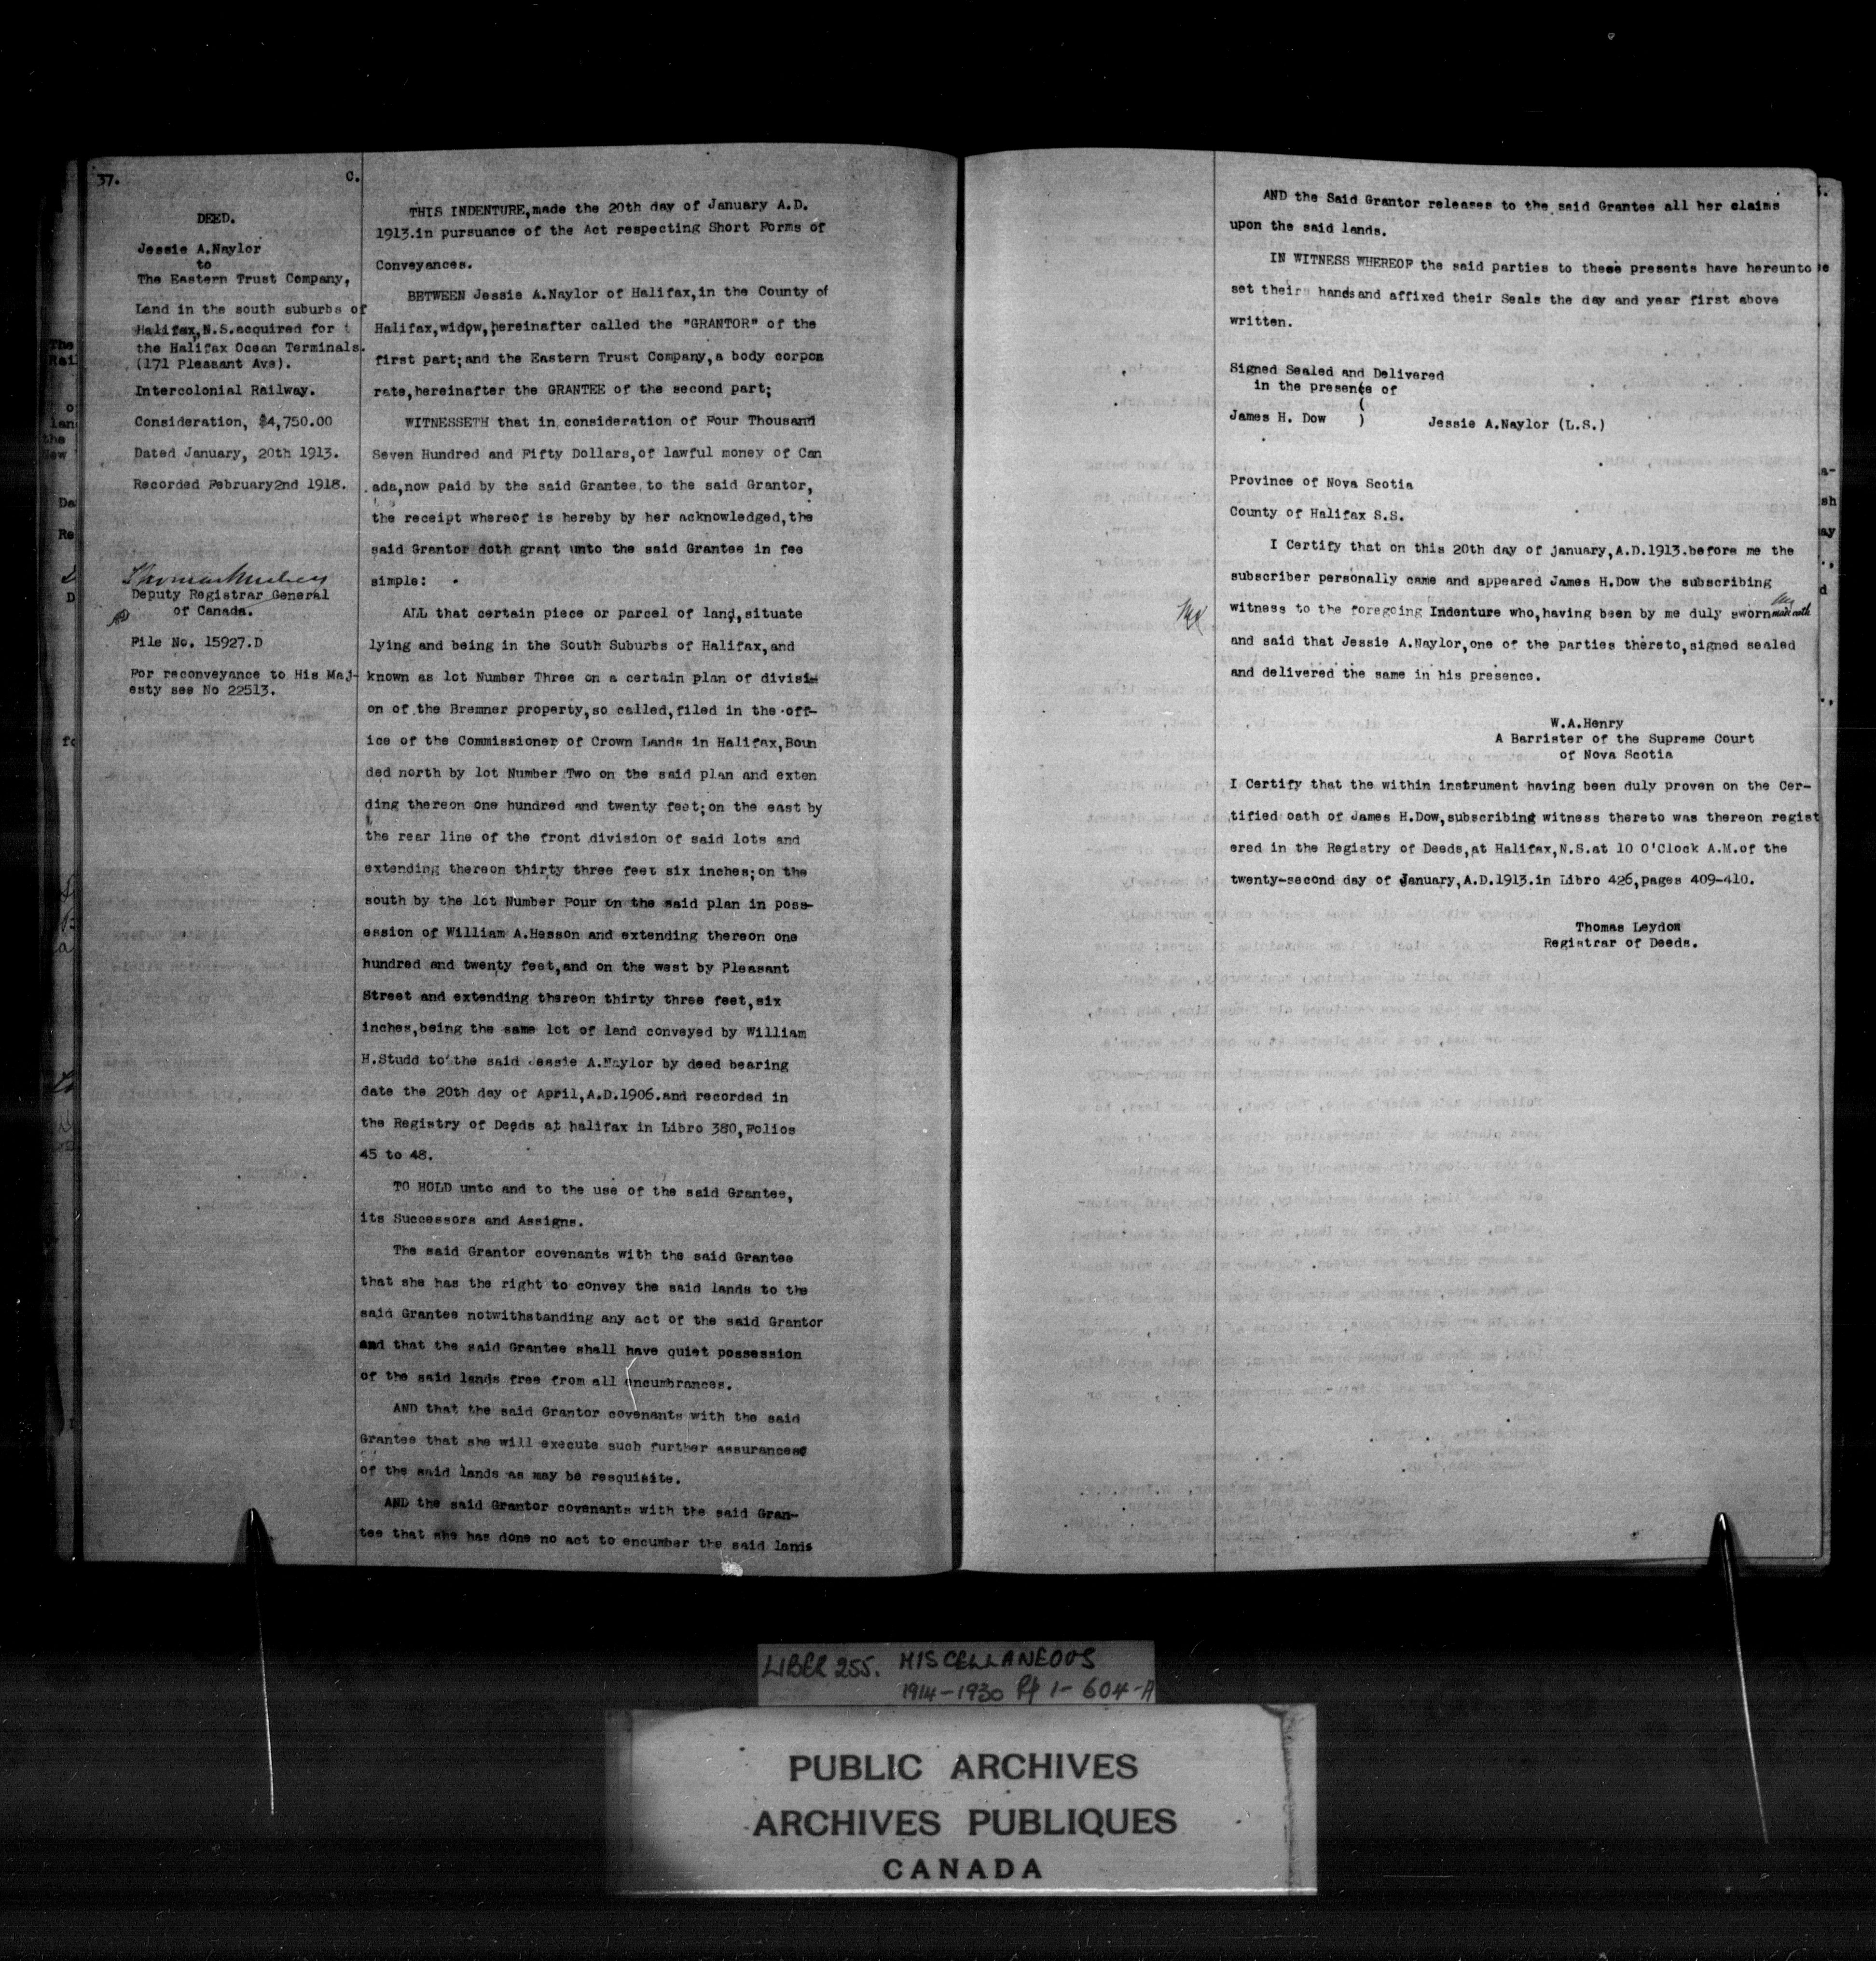 37.
C.
DEED.
Jessie A.Naylor
to
The Eastern Trust Company,
Land in the south suburbs of
Halifax,N.S.acquired for t
the Halifax Ocean Terminals.
(171 Pleasant Ave).
Intercolonial Railway.
Consideration, $4,750.00
Dated January, 20th 1913.
Recorded February2nd 1918.
Deputy Registrar General
of Canada.
File No. 15927.D
For reconveyance to His Maj-
esty see No 22513.
THIS INDENTURE,made the 20th day of January A.D.
1913.in pursuance of the Act respecting Short Forms of
Conveyances.
BETWEEN Jessie A.Naylor of Halifax,in the County of
Halifax,widow,hereinafter called the "GRANTOR" of the
first part;and the Eastern Trust Company,a body corpoa
rate,hereinafter the GRANTEE of the second part;
WITNESSETH that in consideration of Four Thousand
Seven Hundred and Fifty Dollars,of lawful money of Can
ada,now paid by the said Grantee,to the said Grantor,
the receipt whereof is hereby by her acknowledged,the
said Grantor doth grant unto the said Grantee in fee
simple:
ALL that certain piece or parcel of land,situate
lying and being in the South Suburbs of Halifax,and
known as lot Number Three on a certain plan of divisi-
on of the Bremner property,so called,filed in the off-
ice of the Commissioner of Crown Lands in Halifax,Boun
ded north by lot Number Two on the said plan and exten
ding thereon one hundred and twenty feet;on the east by
the rear line of the front division of said lots and
extending thereon thirty three feet six inches;on the
south by the lot Number Four on the said plan in poss-
ession of William A.Hesson and extending thereon one
hundred and twenty feet,and on the west by Pleasant
Street and extending thereon thirty three feet,six
inches,being the same lot of land conveyed by William
H.Studd to the said Jessie A.Naylor by deed bearing
date the 20th day of April,A.D.1906.and recorded in
the Registry of Deeds at halifax in Libro 380,Folios
45 to 48.
TO HOLD unto and to the use of the said Grantee,
its Successors and Assigns.
The said Grantor covenants with the said Grantee
that she has the right to convey the said lands to the
said Grantee notwithstanding any act of the said Grantor
and that the said Grantee shall have quiet possession
of the said lands free from all encumbrances.
AND that the said Grantor covenants with the said
Grantee that she will execute such further assurances
of the said lands as may be resquisite.
AND the said Grantor covenants with the said Gran-
tee that she has done no act to encumber the said lands
AND the Said Grantor releases to the said Grantee all her claims
upon the said lands.
IN WITNESS WHEREOF the said parties to these presents have hereunto
set their hands and affixed their Seals the day and year first above
written.
Signed Sealed and Delivered
in the presence of
(
James H. Dow ) Jessie A.Naylor (L.S.)
Province of Nova Scotia
County of Halifax S.S.
I Certify that on this 20th day of january,A.D.1913.before me the
subscriber personally came and appeared James H.Dow the subscribing
witness to the foregoing Indenture who,having been by me duly sworn made oath
and said that Jessie A.Naylor,one of the parties thereto,signed sealed
and delivered the same in his presence.
W.A.Henry
A Barrister of the Supreme Court
of Nova Scotia
I Certify that the within instrument having been duly proven on the Cer-
tified oath of James H.Dow,subscribing witness thereto was thereon regist
ered in the Registry of Deeds,at Halifax,N.S.at 10 O'Clock A.M.of the
twenty-second day of January,A.D.1913.in Libro 426,pages 409-410.
Thomas Leydon
Registrar of Deeds.
LIBER 255. MISCELLANEOUS
1914-1930 Pp 1- 604-A
PUBLIC ARCHIVES
ARCHIVES PUBLIQUES
CANADA